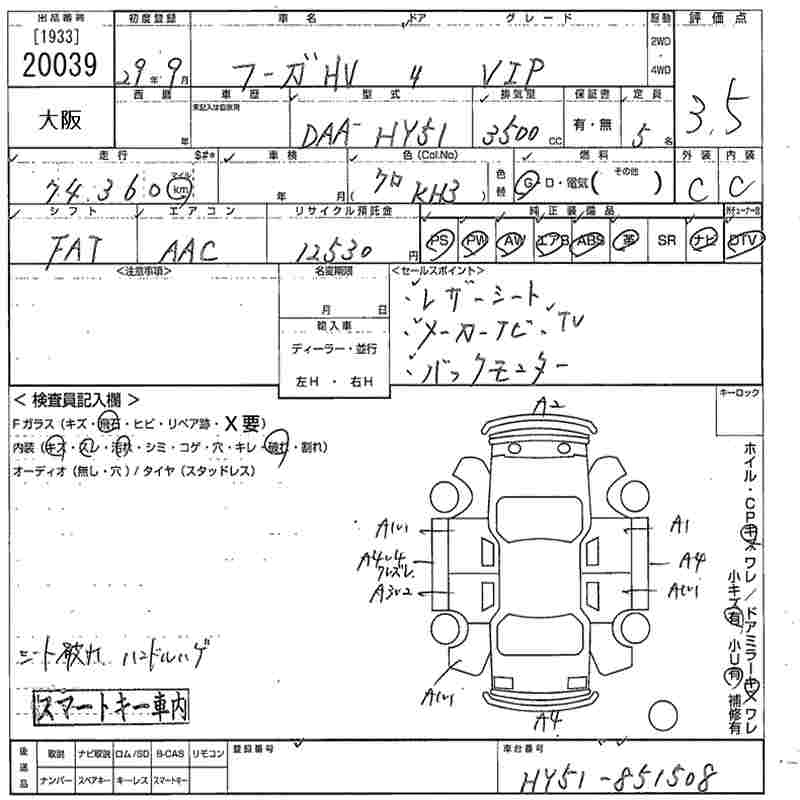 出品番号 初度登録 車名 ドア グレード 駆動 評価点
[1933]
20039
29年 9月 フーガHV 4 VIP 2WD 4WD
3.5
大阪
西暦 車歴 型式 排気量 保証書 定員
未記入は自家用
年 DAA-HY51 3500cc 有・無 5名
走行 $#* 車検 色(Col.No) 燃料 外装 内装
74,360 マイル km 年 月 ( クロ KH3 ) 色替 G・D・電気( その他 ) C C
シフト エアコン リサイクル預託金 純正装備品 外チューナー含
FAT AAC 12530円 PS PW AW エアB ABS 革 SR ナビ DTV
<注意事項> 名変期限 <セールスポイント>
月 日
・レザーシート
輸入車
・メーカーナビ・TV
ディーラー・並行
・バックモニター
左H ・ 右H
<検査員記入欄> キーロック
Fガラス(キズ・飛石・ヒビ・リペア跡・X要)
内装(キズ・スレ・汚れ・シミ・コゲ・穴・キレ・破れ・割れ)
オーディオ(無し・穴)/タイヤ(スタッドレス)
A2
A1(U) A1
A4U4 A4
クレズレ
A3U2 A(U)
A(U)
A4
ホイル・CPキズワレ/ドアミラーキズワレ
小キズ有/小U有/補修有
シート破れ ハンドルハゲ
スマートキー車内
後送品 取説 ナビ取説 ロム/SD B-CAS リモコン 登録番号 車台番号
ナンバー スペアキー キーレス スマートキー HY51-851508